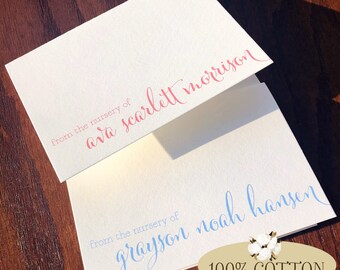 from the nursery of
ava scarlett morrison
from the nursery of
grayson noah hansen
100% COTTON